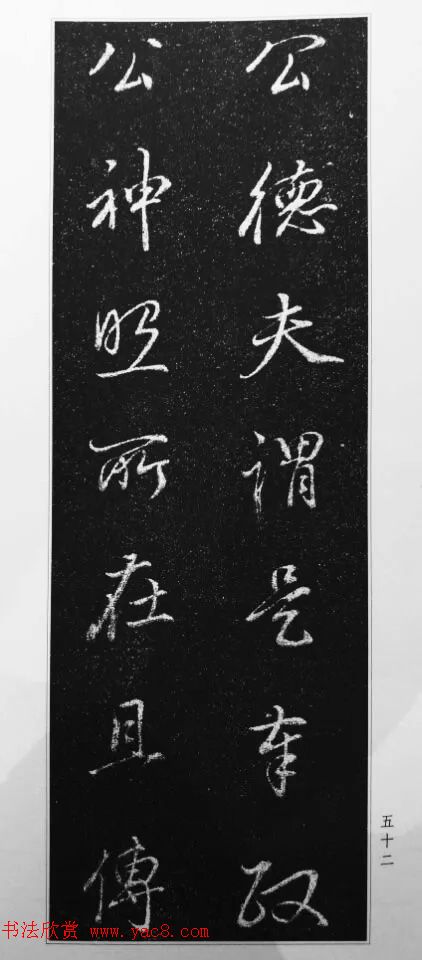 公德夫謂是奉政
公神照所在且傳
五十二
书法欣赏 www.yac8.com